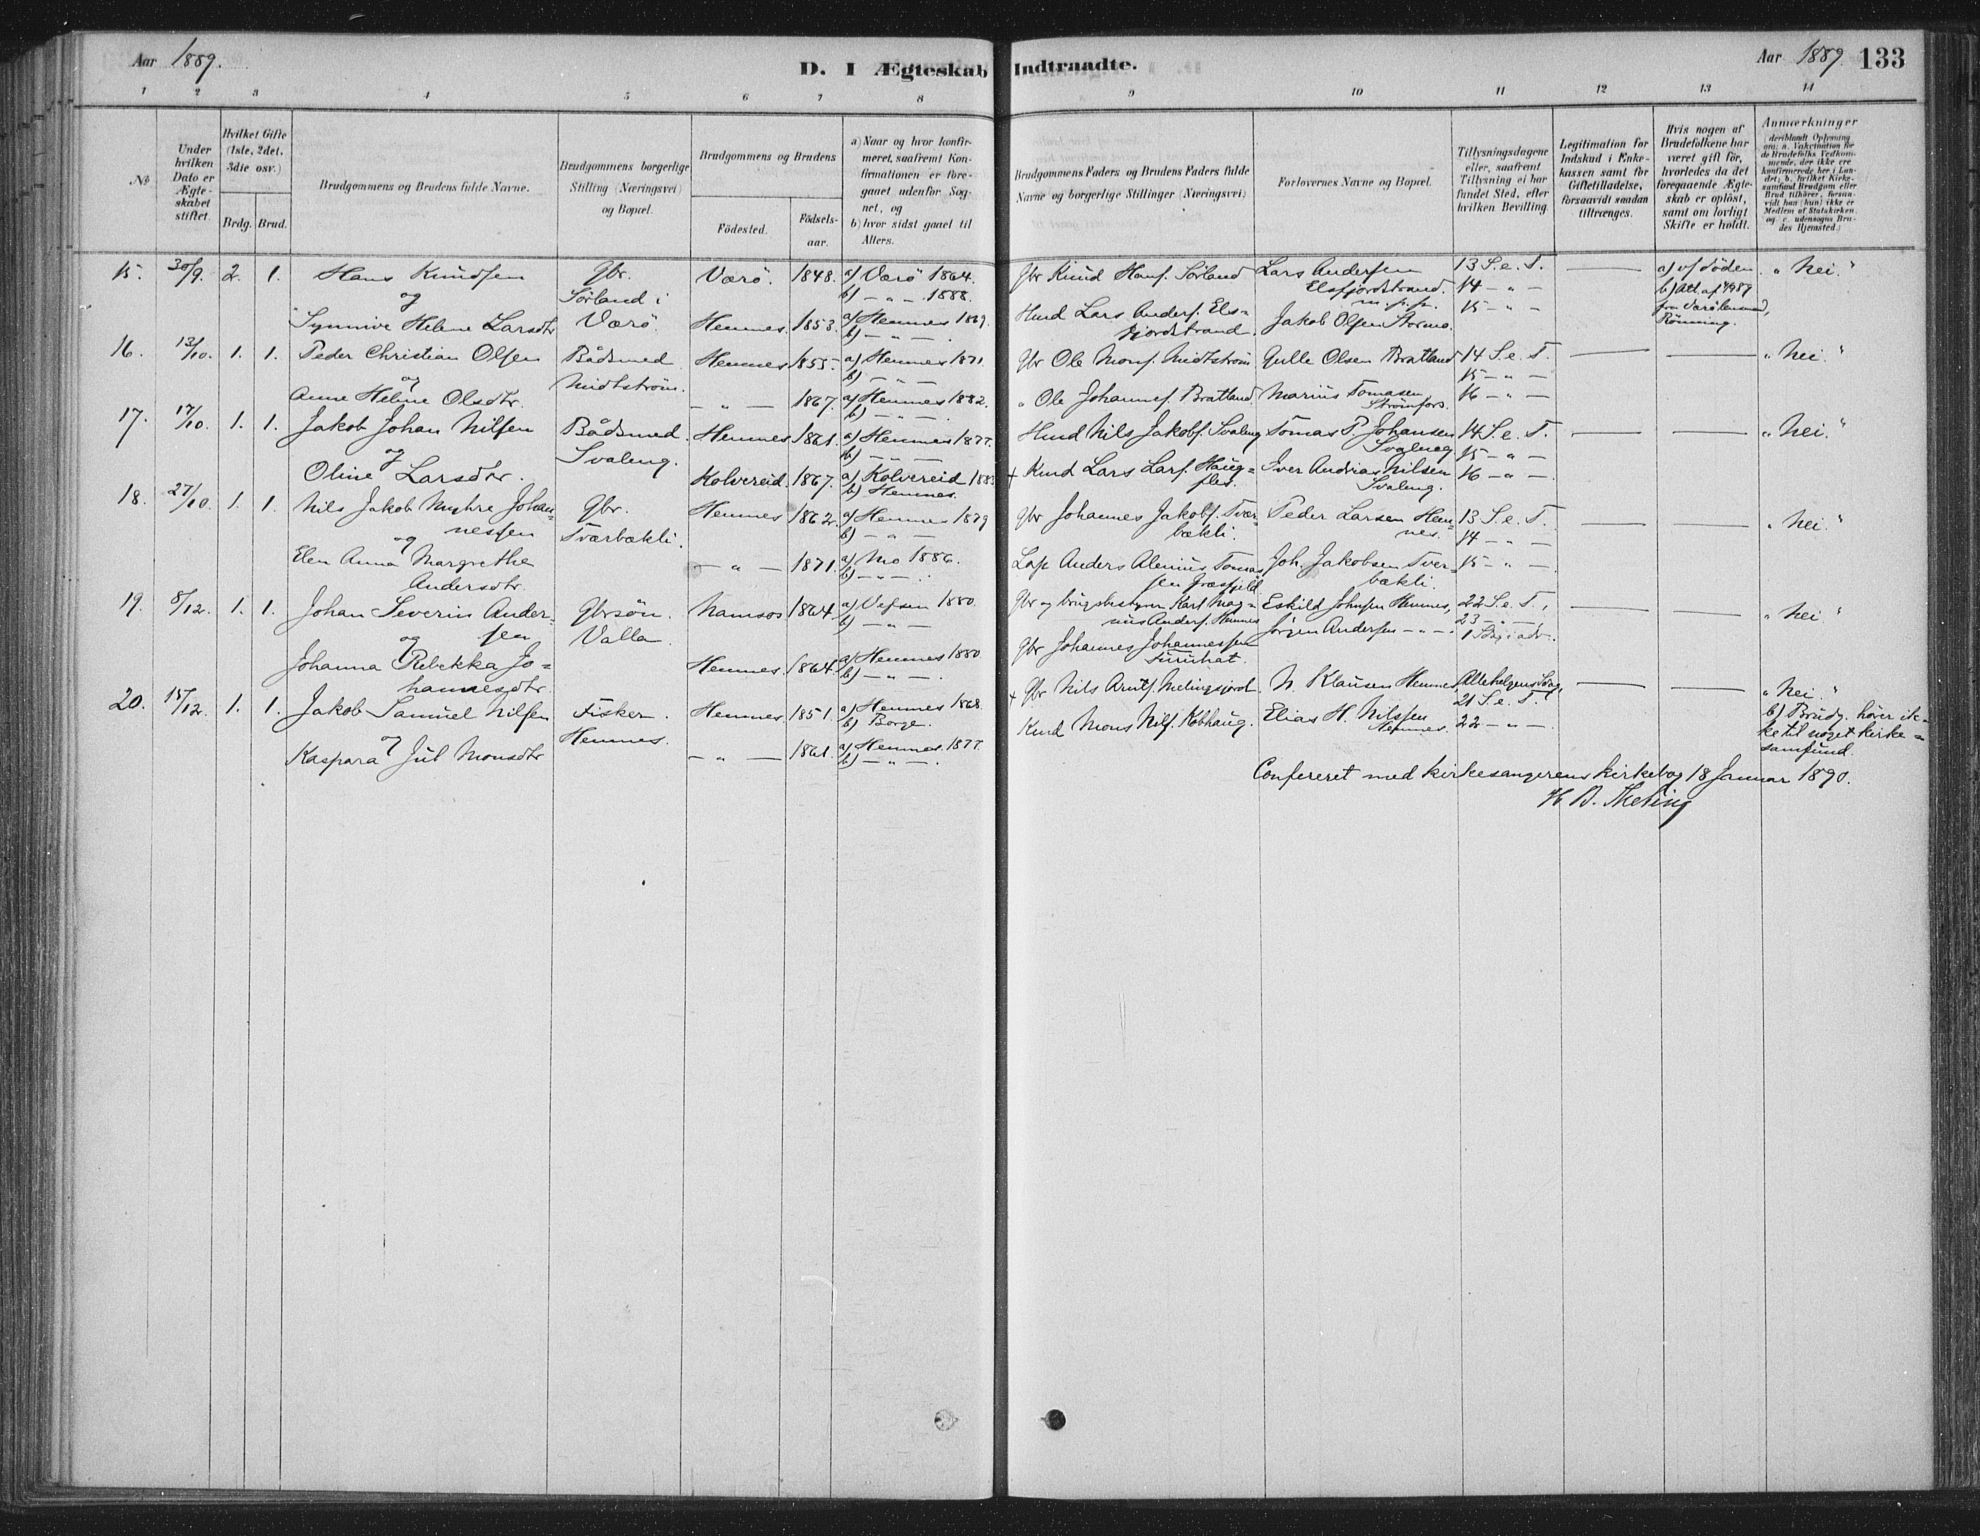 Aar 1889.
D. I Ægteskab Indtraadte.
Aar 1889. 133
1 2 3 4 5 6 7 8 9 10 11 12 13 14
No
Under hvilken Dato er Ægteskabet stiftet.
Hvilket Gifte (1ste, 2det, 3die osv.)
Brdg. Brud.
Brudgommens og Brudens fulde Navne.
Brudgommens borgerlige Stilling (Næringsvei) og Bopæl.
Brudgommens og Brudens
Födested.
Födselsaar.
a) Naar og hvor konfirmeret, saafremt Konfirmationen er foregaaet udenfor Sognet, og
b) hvor sidst gaaet til Alters.
Brudgommens Faders og Brudens Faders fulde Navne og borgerlige Stillinger (Næringsvei)
Forlovernes Navne og Bopæl.
Tillysningsdagene eller, saafremt Tillysning ei har fundet Sted, efter hvilken Bevilling.
Legitimation for Indskud i Enkekassen samt for Giftetilladelse, forsaavidt saadan tiltrænges.
Hvis nogen af Brudefolkene har været gift för, hvorledes da det foregaaende Ægteskab er oplöst, samt om lovligt Skifte er holdt.
Anmærkninger
15. 30/9. 2. 1. Hans Knudsen
og
Synnive Helene Larsdtr
Gbr. Sörland i Værö.
Værö. 1848. a) Værö 1864. b) – " – 1888.
Hemnes. 1853. a) Hemnes 1869. b) – " – .
Gbr Knud Hans. Sörland
Hmd Lars Anders. Elsfjordstrand.
Lars Andersen Elsfjordstrand. m. p. p.
Jakob Olsen Stormo.
13 S. e. T.
14 – " –
15 – " –
a) v/ Döden
" Nei. "
16. 13/10. 1. 1. Peder Christian Olsen
og
Anne Heline Olsdtr.
Bådsmed Midtström.
Hemnes. 1855. a) Hemnes 1871. b) – " –
– " – 1867. a) Hemnes 1882. b) – " – .
Gbr Ole Mons. Midtström
" Ole Johannes. Bratland.
Gulle Olsen Bratland
Marius Tomasen Strömfors.
14 S. e. T.
15 – " –
16 – " –
" Nei. "
17. 17/10. 1. 1. Jakob Johan Nilsen
og
Oline Larsdtr.
Bådsmed. Svaleng.
Hemnes 1861. a) Hemnes 1877. b) – " –
Kolvereid. 1867. a) Kolvereid b) Hemnes.
Hmd Nils Jakobs. Svaleng
+ Kmd Lars Lars.
Tomas P. Johansen Svaleng
Iver Andrias Nilsen Svaleng.
14 S. e. T.
15 – " –
16 – " –
" Nei. "
18. 27/10. 1. 1. Nils Jakob Myhre Johannessen
og
Elen Anna Margrethe Andersdtr.
Gbr. Tværbækli.
Hemnes 1862. a) Hemnes 1879 b) – " –
– " – 1871. a) Mo 1886. b) – " – .
Gbr Johannes Jakobs. Tværbækli.
Lap Anders Alenius Tomassen
Peder Larsen Hemnes.
Joh. Jakobsen Tverbækli.
13 S. e. T.
14 – " –
15 – " –
" Nei. "
19. 8/12. 1. 1. Johan Severin Andersen
og
Johanna Rebekka Johannesdtr.
Gbrsön. Valla.
Namsos 1864. a) Vefsen 1880. b) – " –
Hemnes. 1864. a) Hemnes 1880. b) – " – .
Gbr og brugsbestyrer Karl Magnus Anders. Hemnes
Gbr Johannes Johannessen
Eskild Johnsen Hemnes,
Jörgen Andersen – " – .
22 S. e. T.,
23 – " –
" Nei "
20. 15/12. 1. 1. Jakob Samuel Nilsen
og
Kaspara Jul Monsdtr
Fisker. Hemnes.
Hemnes. 1851. a) Hemnes 1868. b) Borge.
– " – 1861. a) Hemnes. 1877. b) – " – .
+ Gbr Nils Arnts.
Kmd Mons Nils. Kobhaug.
N. Klausen Hemnes
Elias H. Nilssen Hemnes.
Allehelgensdag,
21 S. e. T.
22 – " –
" Nei. "
b) Brudg. hörer ikke til noget kirkesamfund.
Confereret med kirkesangerens kirkebog 18 Januar 1890.